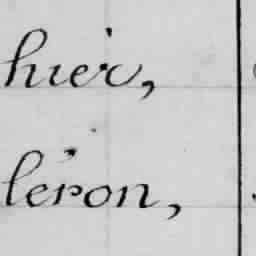 hier,
leron,